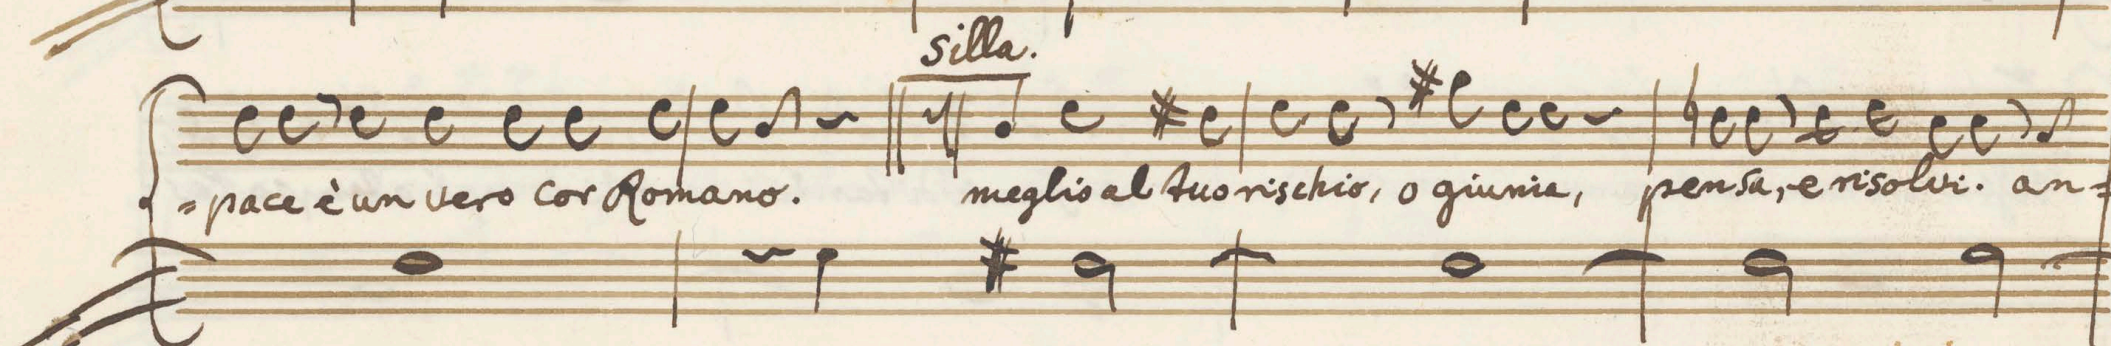 silla.
=pace è un vero cor Romano. meglio al tuo rischio, o giunia, pensa, e risolvi. an=